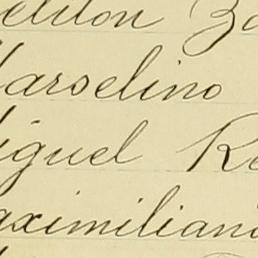 eliton Za
arselino
iguel Re
aximiliano